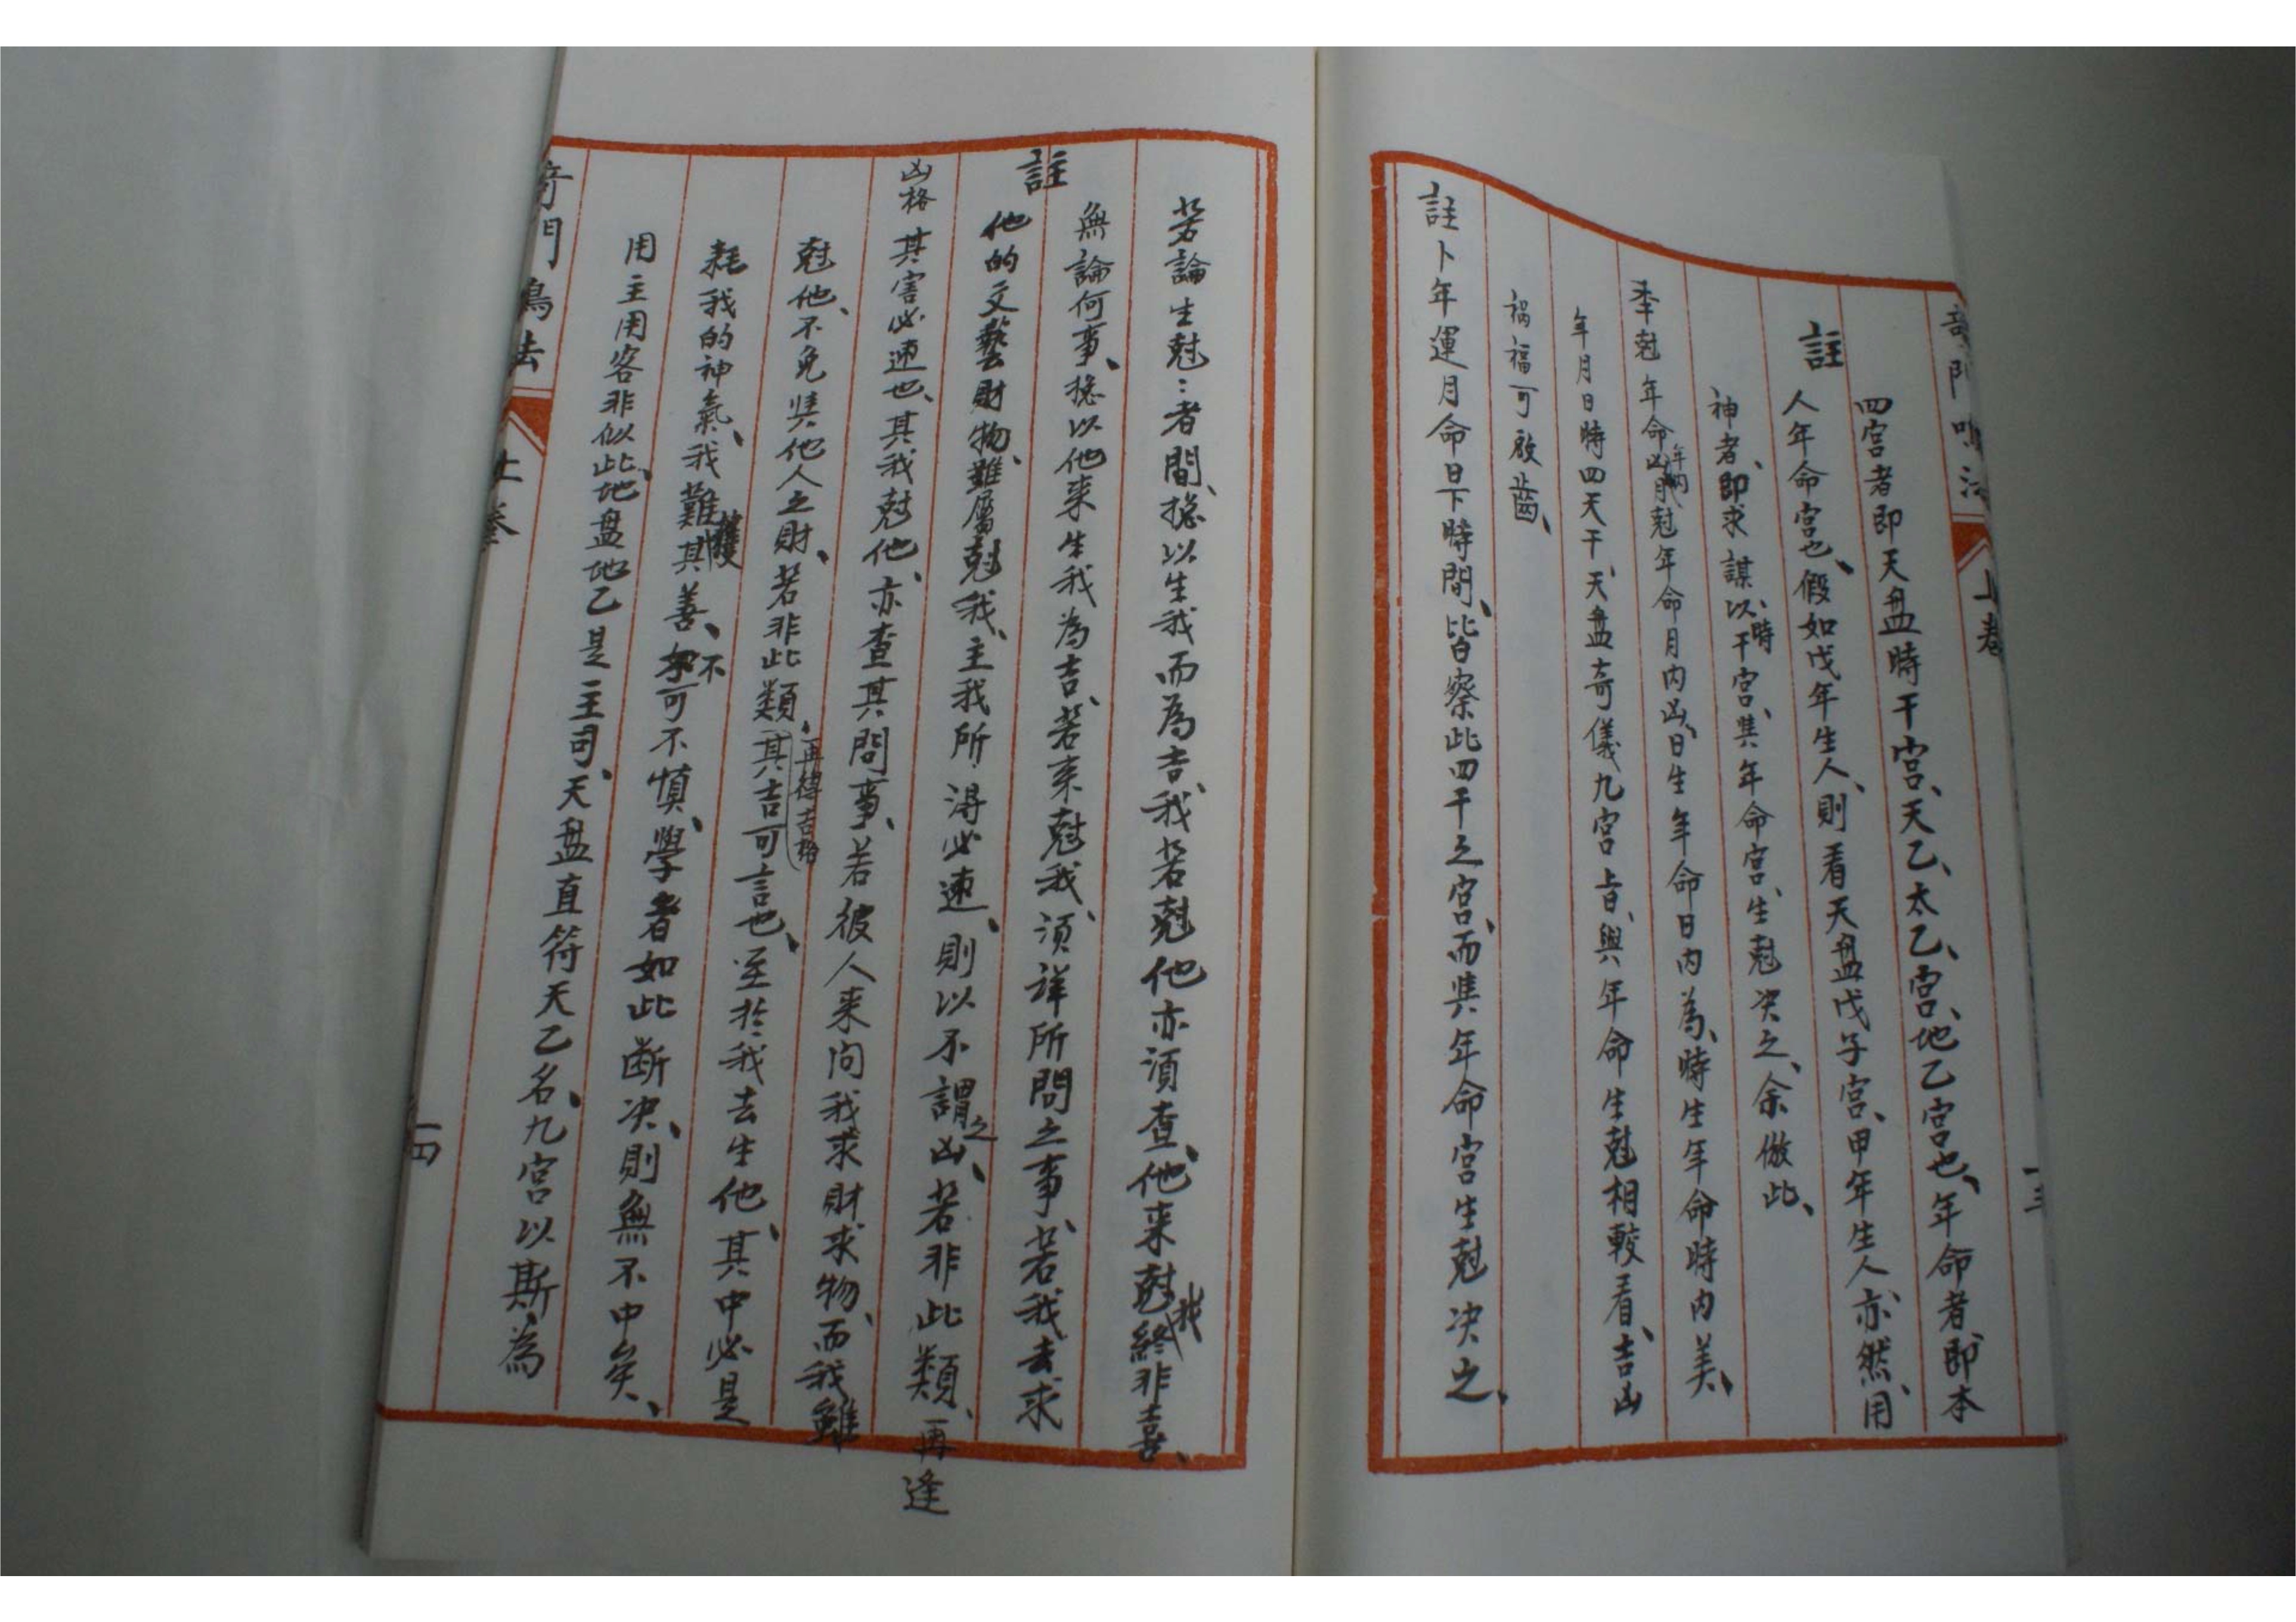 奇門鳴法
上卷
十三
四宮者即天盘時干宮、天乙、太乙、宮、地乙宮也、年命者即本
註
人年命宮也、假如戊年生人、則看天盘戊子宮、甲年生人亦然、用
神者、即求謀以時干宮、與年命宮、生尅决之、余倣此、
年尅年命凶年內月尅年命月内凶、日生年命日内為、時生年命時内美、
年月日時四天干、天盘奇儀九宮旨、與年命生尅相較看、吉凶
禍福可啟齒、
註卜年運月命日下時間、皆察此四干之宮、而與年命宮生尅决之、
若論生尅:者間、摠以生我而為吉、我若尅他亦須查、他来尅我終非喜、
註
無論何事、摠以他来生我為吉、若来尅我、須詳所問之事、若我去求
他的文藝財物、雖屬尅我、主我所得必速、則以不謂之凶、若非此類、再逢
凶格其害必速也、其我尅他、亦查其問事、若彼人来问我求財求物、而我雖
尅他、不免與他人之財、若非此類、再得吉格其吉可言也、至於我去生他、其中必是
耗我的神氣、我難獲其善、不可不慎、學者如此断决、則無不中矣、
用主用客非似此、地盘地乙是主司、天盘直符天乙名、九宮以斯為
奇門鳴法
上卷
十四